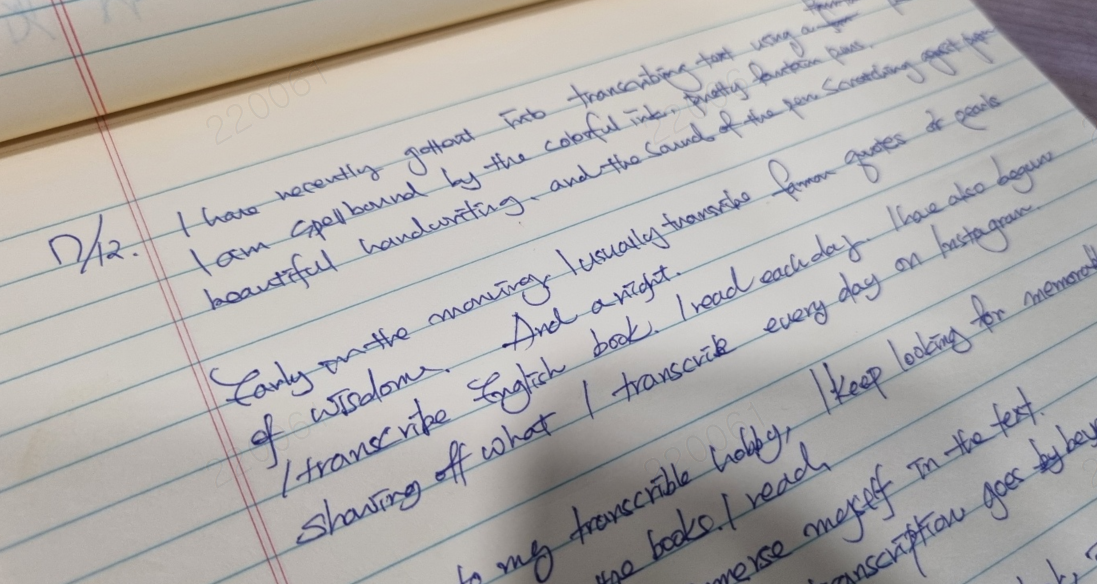 17/12.
I have recently gotten into transcribing text using a
I am spellbound by the colorful ink. pretty fountain pens.
beautiful handwriting. and the sound of the pen scratching
Early on the morning. I usually transcribe famon quotes or pearls
of wisdom. And a night.
I transcribe English book. I read each day. I have also begun
showing off what I transcribe every day on Instagram.
to my transcrible hobby, I keep looking for
the books. I read,
myself in the text.
goes
220061